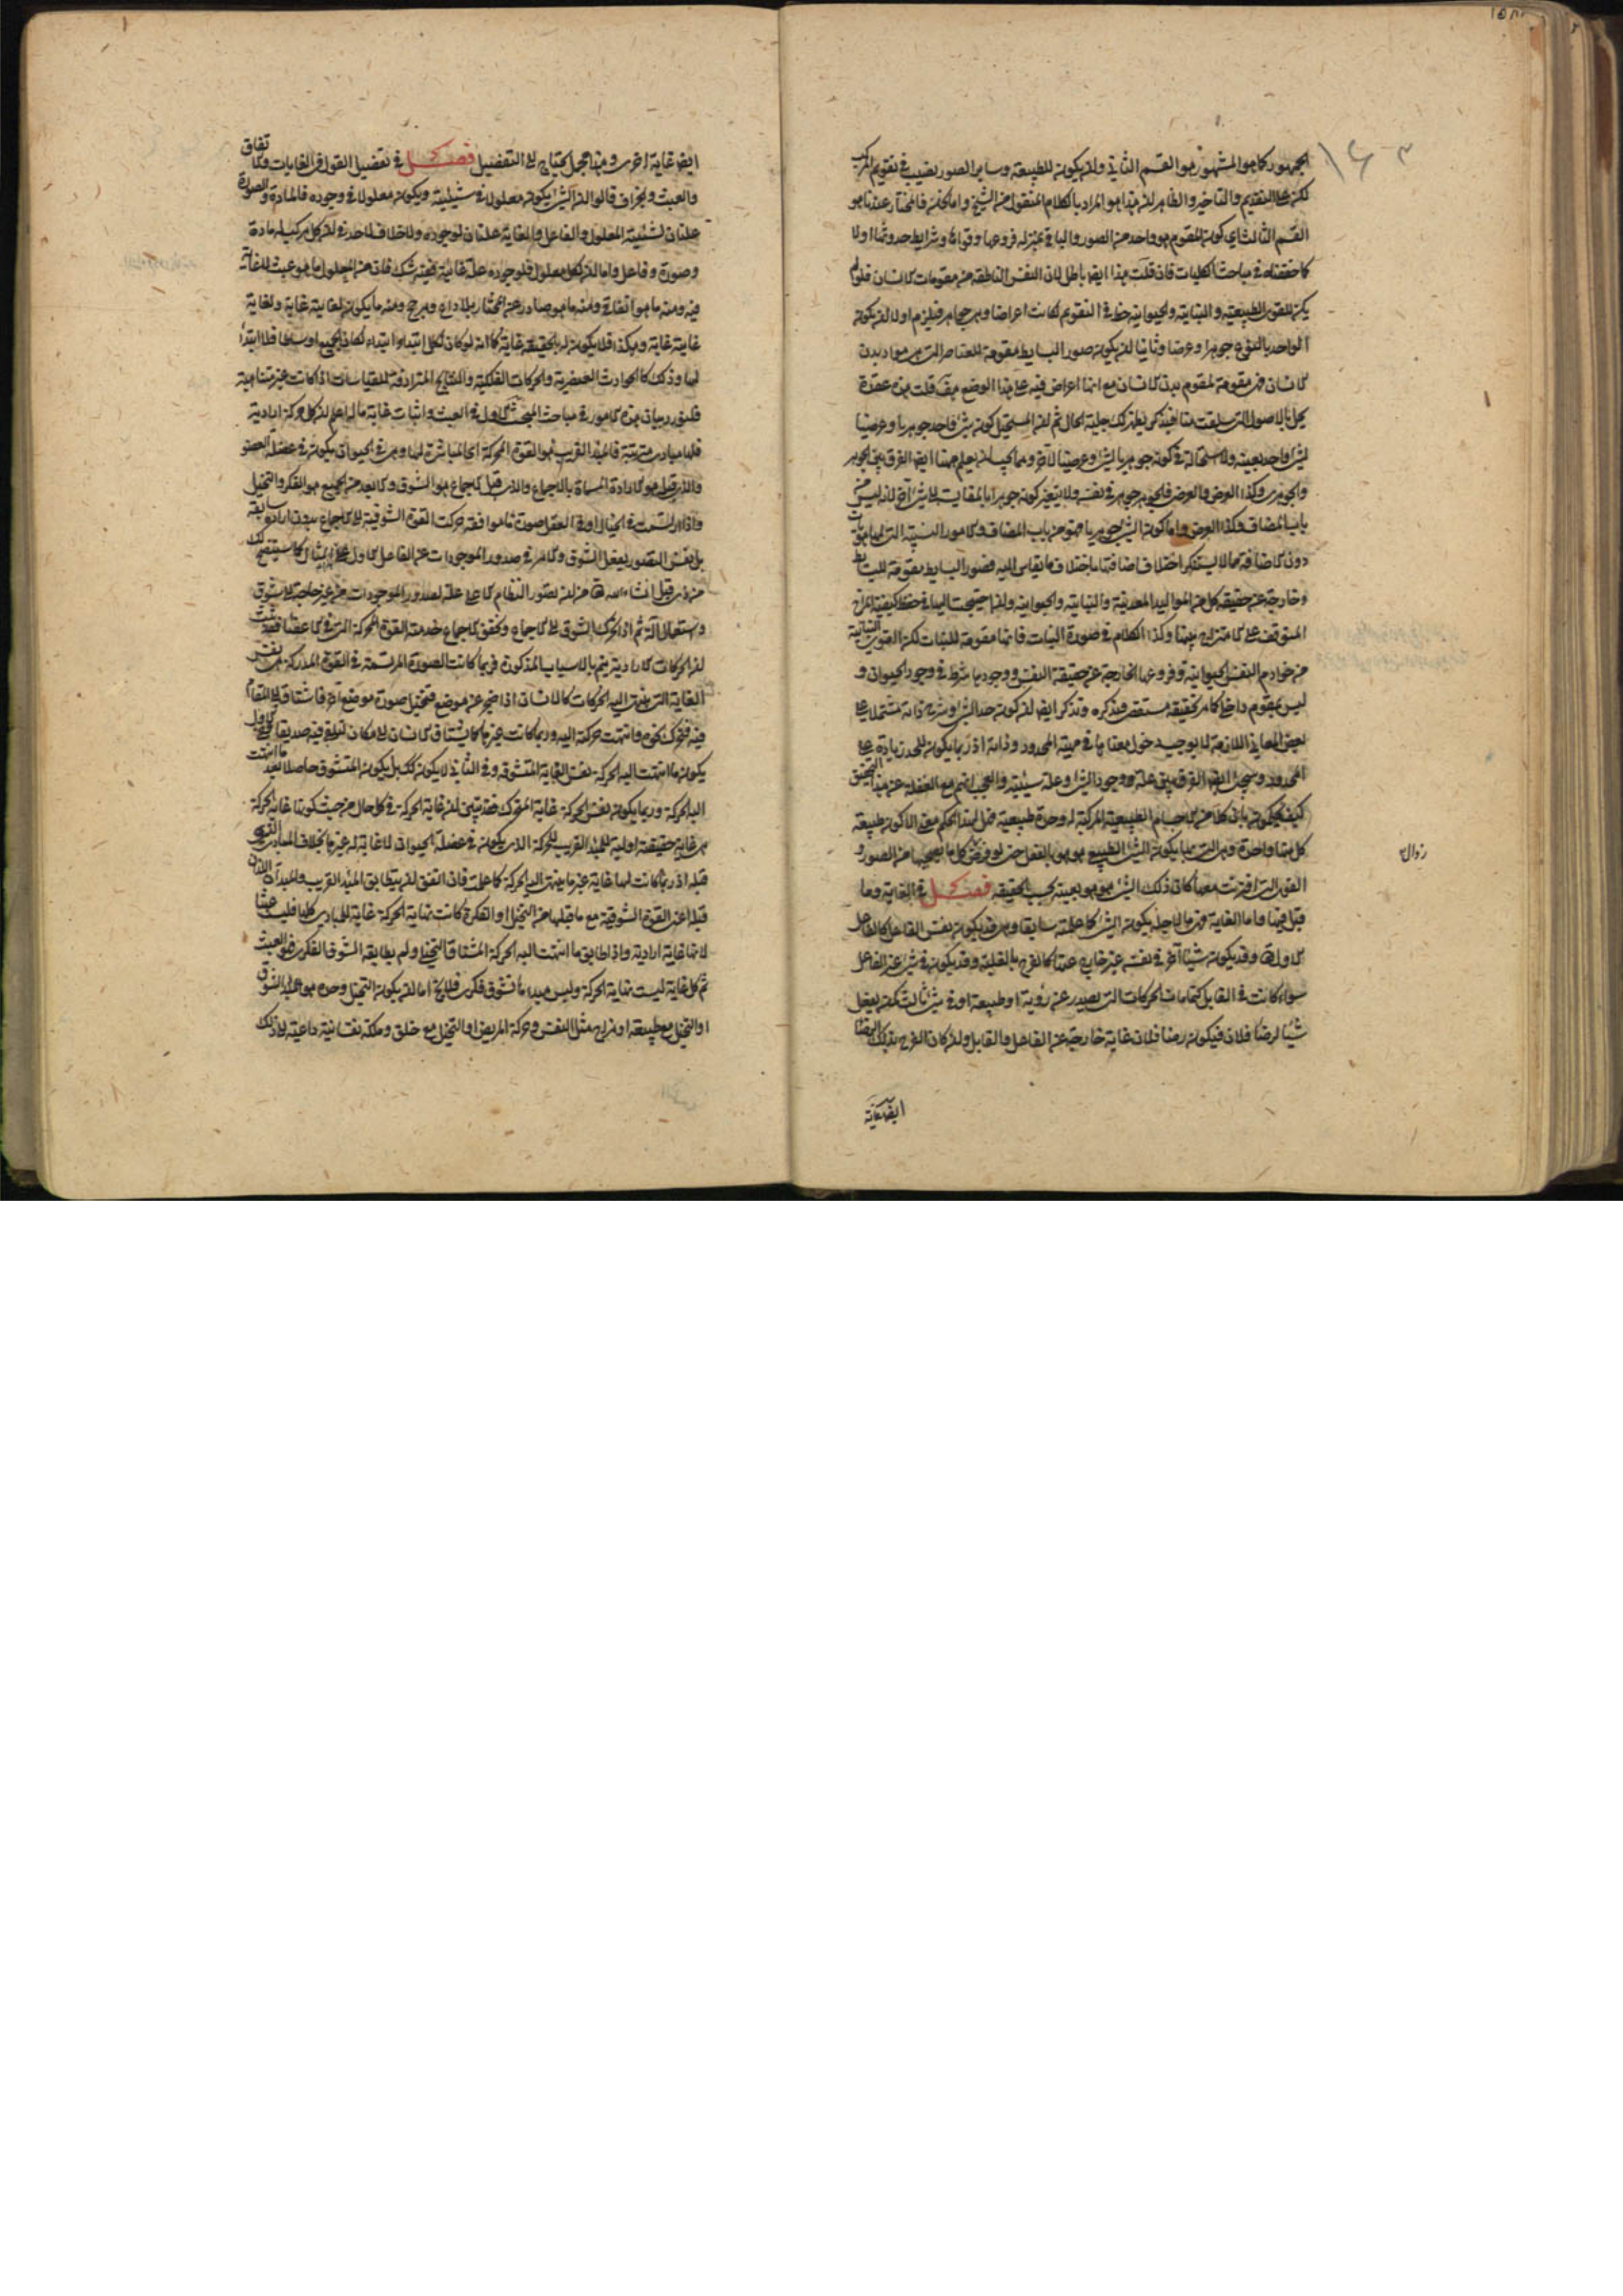 الجمهور كما هو المشهور هو القسم الثاني وان يكون للطبيعة وساير الصور نصيب في تقويم المركب
لكن على التقديم والتاخير والظاهر ان هذا هو المراد بالكلام المنقول من الشيخ واما نحن فالمختار عندنا هو
القسم الثالث اي كون المقوم هو واحد من الصور والباقي بمنزلة فروعها وقواها وشرايط حدوثها اولا
كما حققناه في مباحث الكليات فان قلت هذا ايضا باطل لان النفس الناطقة من مقومات الانسان فلو لم
يكن للقوى الطبيعية والنباتية والحيوانية حظ في التقويم لكانت اعراضا وهي جواهر فيلزم اولا ان يكون
الواحد بالنوع جوهرا وعرضا وثانيا ان يكون صور البسايط مقومة للعناصر التي هي مواد بدن
الانسان فهي مقومة لمقوم بدن الانسان مع انها اعراض فيه على هذا الوضع هف قلت هذه عقدة
يحل بالاصول التي سبقت منا فتذكر يظهر لك جلية الحال ثم ان المستحيل كون شئ واحد جوهريا وعرضيا
لشئ واحد بعينه ولا استحالة في كونه جوهريا لشئ وعرضيا لاخر ومما يجب ان يعلم ههنا ايضا الفرق بين الجوهر
والجوهري وكذا العرض والعرضي فالجوهر جوهر في نفسه ولا يتغير كونه جوهرا بالمقايسة الى شئ اخر لانه ليس من
باب المضاف وكذا العرض واما كون الشئ جوهريا فهو من باب المضاف والامور النسبية التي لها هويات
دون الاضافة مما لا يستنكر اختلاف اضافتها باختلاف ما يقاس اليه فصور البسايط مقومة للبسايط
وخارجة عن حقيقة كل من المواليد المعدنية والنباتية والحيوانية وان احتيجت اليها في حفظ كيفية المزاج
المتوقفة على الامتزاج بينها وكذا الكلام في صورة النبات فانها مقومة للنبات لكن القوى النباتية
من خوادم النفس الحيوانية وفروعها الخارجة عن حقيقة النفس ووجودها شرط في وجود الحيوان و
ليس بمقوم داخل كما مر تحقيقه مستقصى فتذكره وتذكر ايضا ان كون حد الشئ وشرح ذاته مشتملا على
بعض المعاني اللازمة لا يوجب دخول معناها في مهية المحدود وذاته اذ ربما يكون للحد زيادة على
المحدود وسيجئ ايضا الفرق بين علة وجود الشئ وعلة شيئيته والعجب انهم مع الغفلة عن هذا التحقيق
كيف يحكمون بان كلا من الاجسام الطبيعية المركبة له وحدة طبيعية فهل هذا الحكم معنى الا كون طبيعة
كل منها واحدة وهي التي بها يكون الشئ الطبيعي هو هو بالفعل حتى لو فرض زوال كل ما يصحبها من الصور و
القوى التي اقترنت معها كان ذلك الشئ هو هو بعينه بحسب الحقيقة فصل في الغاية وما
قيل فيها واما الغاية فهي ما لاجله يكون الشئ كما علمته سابقا وهي قد يكون نفس الفاعل كالفاعل
الاول تعالى وقد يكون شيئا اخر في نفسه غير خارج عنها كالفرح بالغلبة وقد يكون في شئ غير الفاعل
سواء كانت في القابل كتمامات الحركات التي يصدر عن روية او طبيعة او في شئ ثالث كمن يفعل
شيئا لرضاء فلان فيكون رضا فلان غاية خارجة عن الفاعل والقابل وان كان الفرح بذلك الرضا
ايضا غاية
ايضا غاية اخرى وهذا مجمل يحتاج الى التفصيل فصل في تفصيل القول في الغايات والاتفاق
والعبث والجزاف قالوا ان الشئ يكون معلولا في شيئيته ويكون معلولا في وجوده فالمادة والصورة
علتان لشيئية المعلول والفاعل والغاية علتان لوجوده ولا خلاف لاحد في ان كل مركب له مادة
وصورة وفاعل واما ان لكل معلول فلوجوده علة غائية ففيه شك فان من المعلول ما هو عبث لا غاية
فيه ومنه ما هو اتفاقي ومنه ما هو صادر عن المختار بلا داع ومرجح ومنه ما يكون لغايته غاية ولغاية
غايته غاية وهكذا فلا يكون له بالحقيقة غاية كما انه لو كان لكل ابتداء ابتداء لكان الجميع اوساطا فلا ابتداء
لها وذلك كالحوادث العنصرية والحركات الفلكية والنتايج المترادفة للقياسات اذا كانت غير متناهية
فلنورد بيان هذه الامور في مباحث المبحث الاول في العبث واثبات غاية ما له اعلم ان كل حركة ارادية
فلها مبادي مترتبة فالمبدأ القريب هو القوة المحركة اي المباشرة لها وهي في الحيوان يكون في عضلة العضو
والذي قبله هو الارادة المسماة بالاجماع والذي قبل الاجماع هو الشوق والابعد من الجميع هو الفكر والتخيل
واذا ارتسمت في الخيال او في العقل صورة ما موافقة حركت القوة الشوقية الى الاجماع بدون ارادة سابقة
بل نفس التصور يفعل الشوق والامر في صدور الموجودات عن الفاعل الاول على هذا المثال كما سيتضح لك
من ذي قبل انشاء الله تعالى من ان تصور النظام الاعلى علة لصدور الموجودات من غير حاجة الى شوق
واستعمال آلة ثم اذا تحرك الشوق الى الاجماع وتحقق الاجماع خدمته القوة المحركة التي في الاعضاء فقد ثبت
ان الحركات الارادية يتم بالاسباب المذكورة فربما كانت الصورة المرتسمة في القوة المدركة هي نفس
الغاية التي ينتهي اليه الحركات كالانسان اذا ضجر عن موضع فتخيل صورة موضع اخر فاشتاق الى المقام
فيه فتحرك نحوه وانتهت حركته اليه وربما كانت غيرها كما يشتاق الانسان الى مكان ليلقى فيه صديقا ففي الاول
يكون ما انتهت اليه الحركة نفس الغاية المتشوقة وفي الثاني لا يكون كك بل يكون المتشوق حاصلا بعد ما انتهت
اليه الحركة وربما يكون نفس الحركة غاية المتحرك فقد تبين ان غاية الحركة في كل حال من حيث كونها غاية الحركة
هي غاية حقيقية اولية للمبدأ القريب للحركة الذي يكون في عضلة الحيوان لا غاية له غيرها بخلاف المبادي التي
قبله اذ ربما كانت لها غاية غير ما ينتهي اليه الحركة كما علمت فان اتفق ان يتطابق المبدأ القريب والمبدآن اللذان
قبله اعني القوة الشوقية مع ما قبلها من التخيل او الفكر كانت نهاية الحركة غاية للمبادي كلها فليست عبثا
لانها غاية ارادية واذا طابق ما انتهت اليه الحركة المشتاق التخيلي ولم يطابقه الشوق الفكري فهو العبث
ثم كل غاية ليست نهاية الحركة وليس مبدءها تشوق فكري فلا يخ اما ان يكون التخيل وحده هو مبدأ الشوق
او التخيل مع طبيعة او مزاج مثل التنفس وحركة المريض او التخيل مع خلق وملكة نفسانية داعية الى ذلك